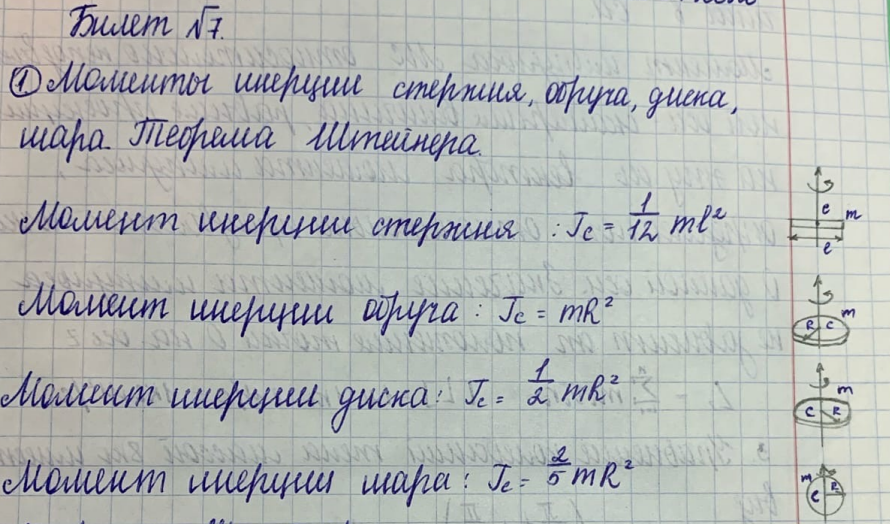 Билет №7.
① Моменты инерции стержня, обруча, диска,
шара. Теорема Штейнера.
Момент инерции стержня : Jc = 1/12 ml²
c m
l
Момент инерции обруча : Jc = mR²
m
R C
Момент инерции диска : Jc = 1/2 mR²
m
C R
Момент инерции шара : Jc = 2/5 mR²
m
C R